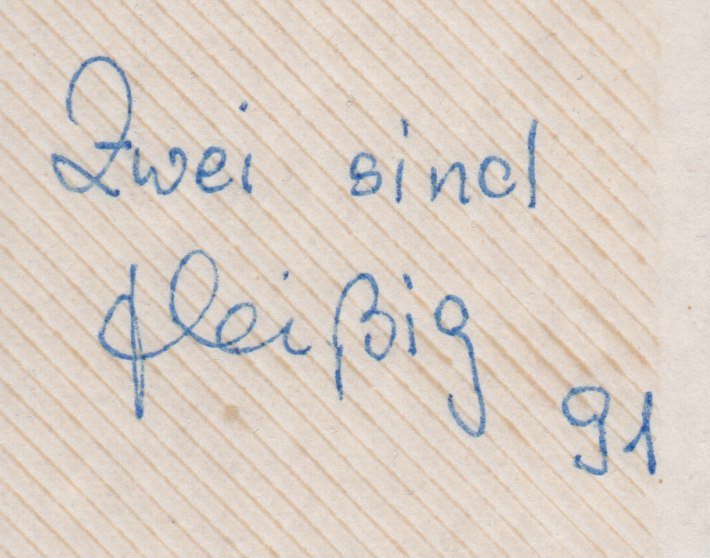 Zwei sind
fleißig
91